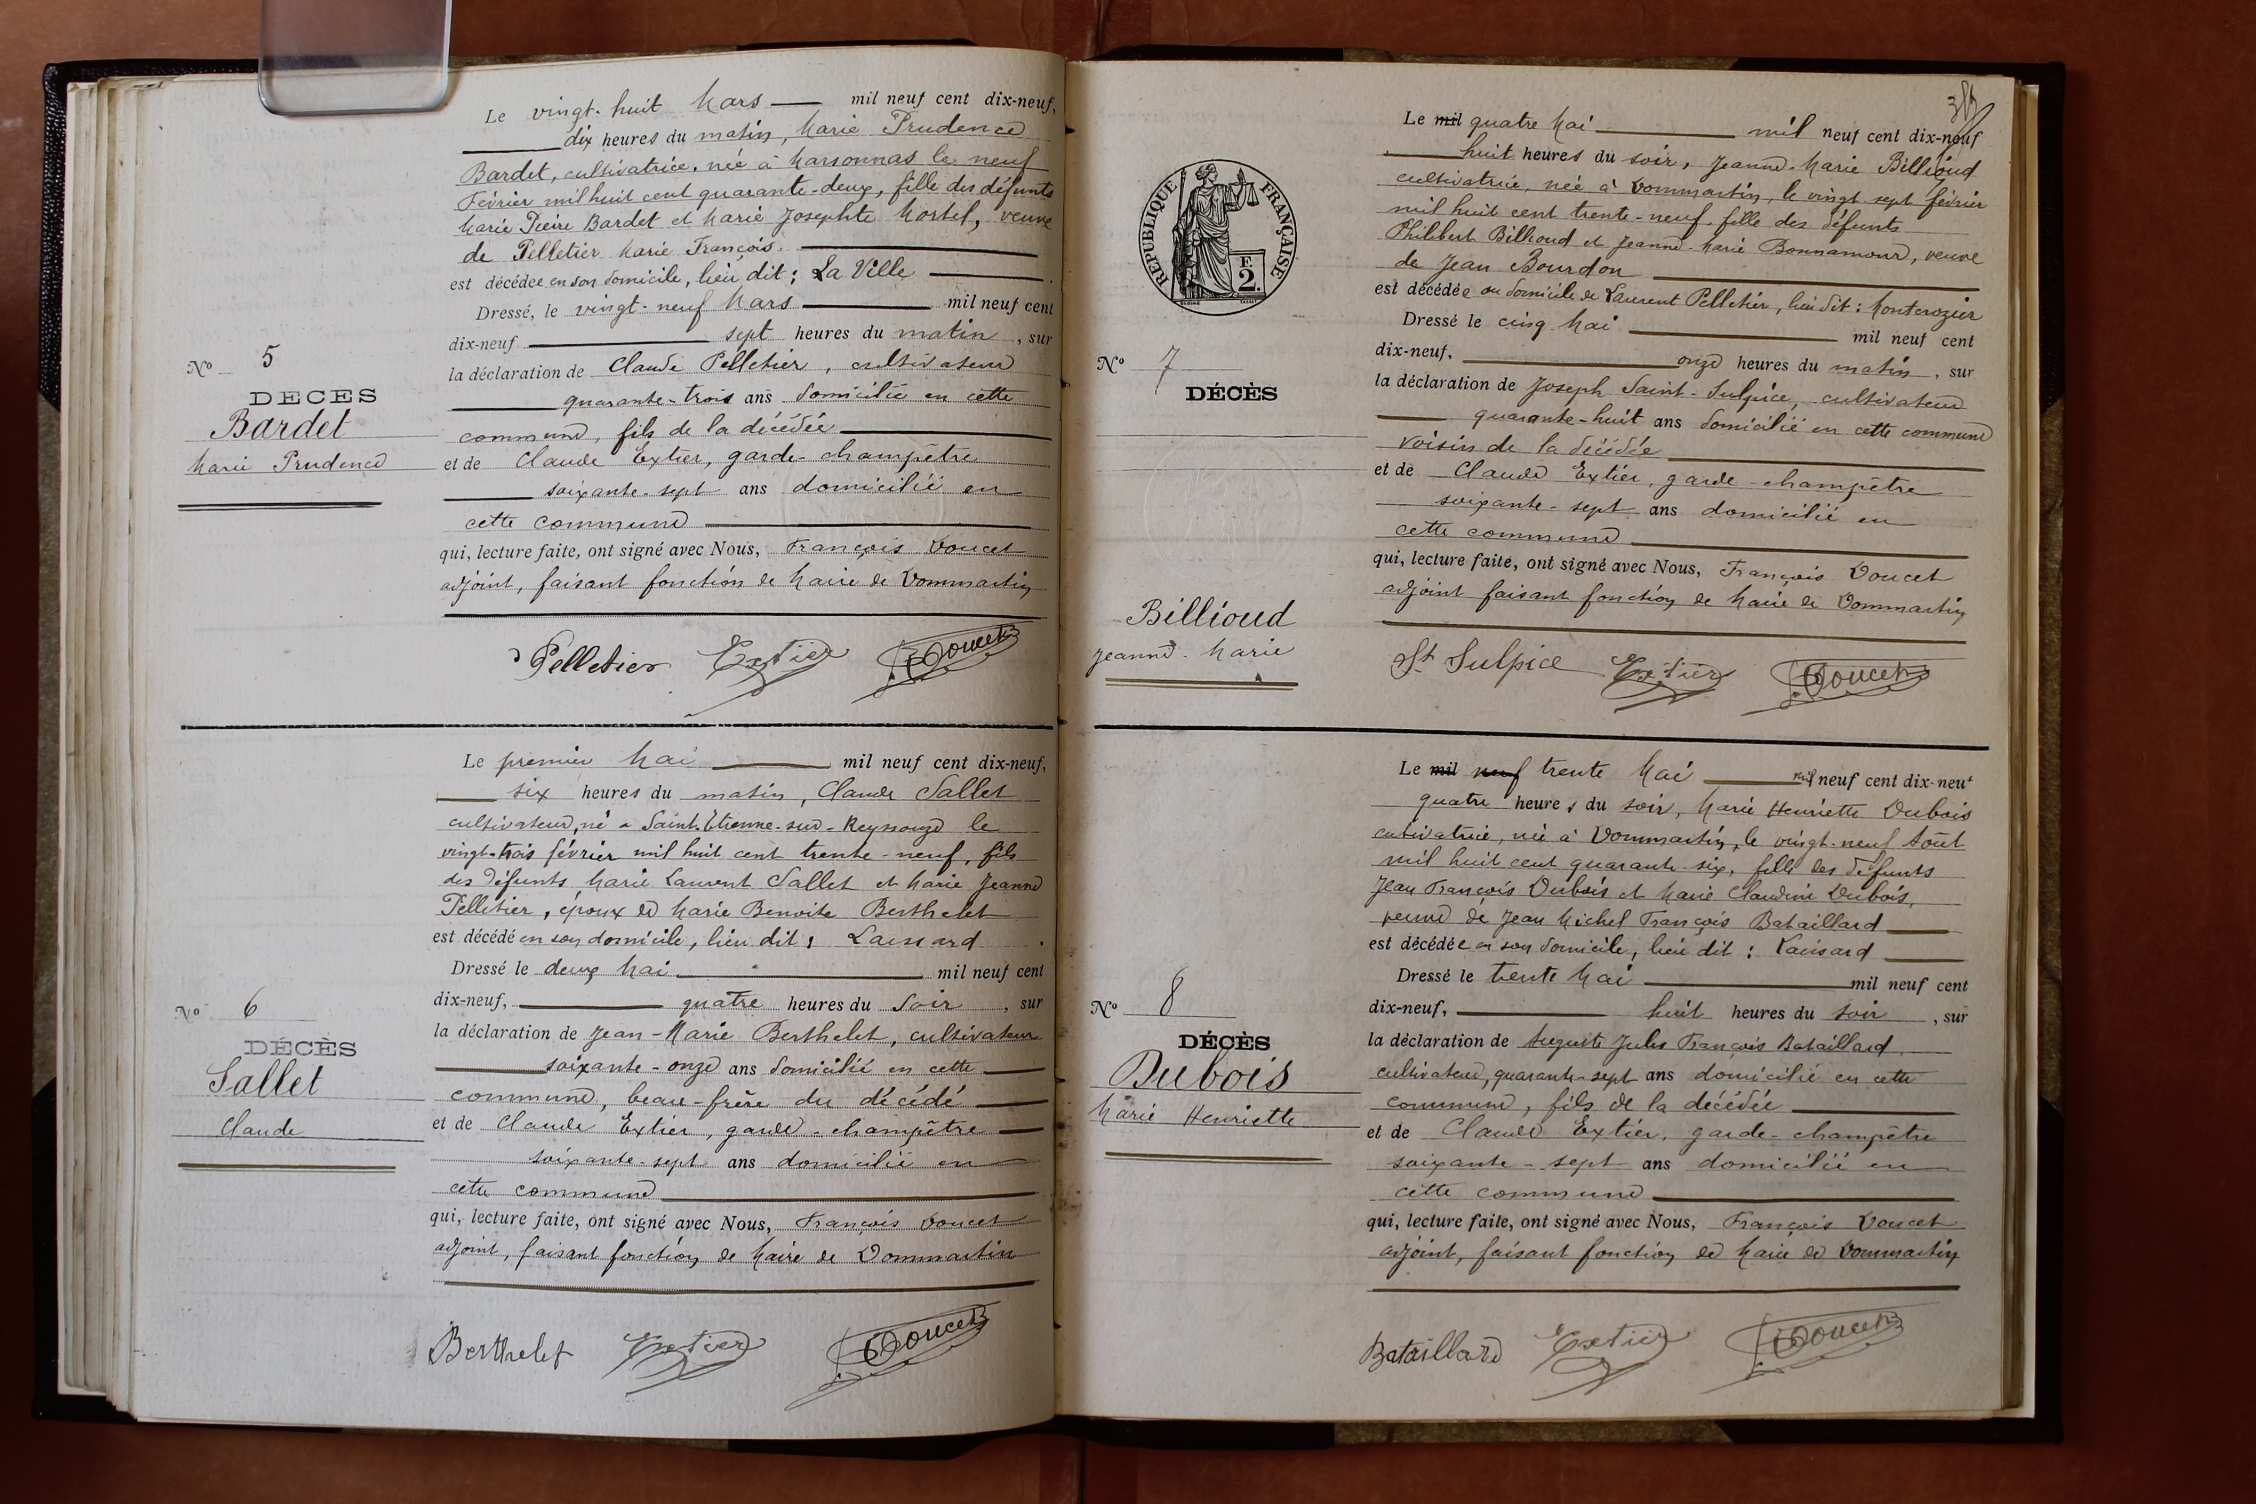 Le vingt-huit Mars mil neuf cent dix-neuf,
dix heures du matin, Marie Prudence
Bardet, cultivatrice, née à Marsonnas le neuf
Février mil huit cent quarante-deux, fille des défunts
Marie Pierre Bardet et Marie Josephte Mortel, veuve
de Pelletier Marie François.
est décédée en son domicile, lieu dit : La Ville
Dressé, le vingt-neuf Mars mil neuf cent
dix-neuf sept heures du matin, sur
la déclaration de Claude Pelletier, cultivateur
quarante-trois ans domicilié en cette
commune, fils de la décédée
et de Claude Extier, garde-champêtre
soixante-sept ans domicilié en
cette commune
qui, lecture faite, ont signé avec Nous, François Doucet
adjoint, faisant fonction de Maire de Dommartin
Nº 5
DÉCÈS
Bardet
Marie Prudence
Pelletier Extier Doucet
Le premier Mai mil neuf cent dix-neuf,
six heures du matin, Claude Sallet
cultivateur, né à Saint-Etienne-sur-Reyssouze le
vingt-trois février mil huit cent trente-neuf, fils
des défunts Marie Laurent Sallet et Marie Jeanne
Pelletier, époux de Marie Benoite Berthelet
est décédé en son domicile, lieu dit :
Dressé le deux Mai mil neuf cent
dix-neuf, quatre heures du soir, sur
la déclaration de Jean-Marie Berthelet, cultivateur
soixante-onze ans domicilié en cette
commune, beau-frère du décédé
et de Claude Extier, garde-champêtre
soixante-sept ans domicilié en
cette commune
qui, lecture faite, ont signé avec Nous, François Doucet
adjoint, faisant fonction de Maire de Dommartin
Nº 6
DÉCÈS
Sallet
Claude
Berthelet Extier Doucet
RÉPUBLIQUE FRANÇAISE
F
2.
Le mil quatre Mai mil neuf cent dix-neuf
huit heures du soir, Jeanne-Marie Billioud
cultivatrice, née à Dommartin, le vingt sept février
mil huit cent trente-neuf fille des défunts
Philibert Billioud et Jeanne-Marie Bonnamour, veuve
de Jean Bourdon
est décédée au domicile de Laurent Pelletier, lieu dit : Montcrozier
Dressé le cinq Mai mil neuf cent
dix-neuf, onze heures du matin, sur
la déclaration de Joseph Saint-Sulpice, cultivateur
quarante-huit ans domicilié en cette commune
voisin de la décédée
et de Claude Extier, garde-champêtre
soixante-sept ans domicilié en
cette commune
qui, lecture faite, ont signé avec Nous, François Doucet
adjoint faisant fonction de Maire de Dommartin
Nº 7
DÉCÈS
Billioud
Jeanne-Marie
St Sulpice Extier Doucet
Le mil neuf trente Mai mil neuf cent dix-neuf
quatre heures du soir, Marie Henriette Dubois
cultivatrice, née à Dommartin, le vingt-neuf Août
mil huit cent quarante-six, fille des défunts
Jean François Dubois et Marie Claudine Dubois,
veuve de Jean Michel François Bataillard
est décédée en son domicile, lieu dit :
Dressé le trente Mai mil neuf cent
dix-neuf, huit heures du soir, sur
la déclaration de Auguste Jules François Bataillard
cultivateur, quarante-sept ans domicilié en cette
commune, fils de la décédée
et de Claude Extier, garde-champêtre
soixante-sept ans domicilié en
cette commune
qui, lecture faite, ont signé avec Nous, François Doucet
adjoint, faisant fonction de Maire de Dommartin
Nº 8
DÉCÈS
Dubois
Marie Henriette
Bataillard Extier Doucet